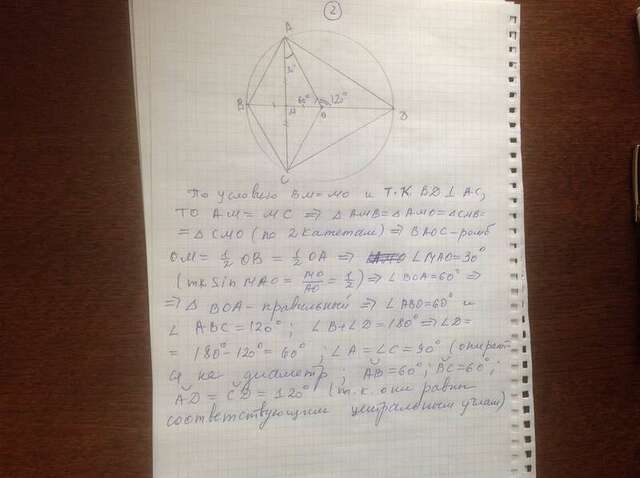 2
A
30°
B
60°
120°
M
O
D
C
По условию BM=MO и т.к BD⊥AC,
то AM=MC ⇒ △AMB=△AMO=△CMB=
=△CMO (по 2 катетам) ⇒ BAOC-ромб
OM=1/2 OB=1/2 OA ⇒ ∠MAO=30°
(тк sin MAO=MO/AO=1/2) ⇒ ∠BOA=60° ⇒
⇒ △ BOA-правильный ⇒ ∠ABO=60° и
∠ ABC=120°; ∠B+∠D=180° ⇒ ∠D=
=180°-120°=60°; ∠A=∠C=90° (опирают-
ся на диаметр; ᴗAB=60°; ᴗBC=60°;
ᴗAD=ᴗCD=120° (т.к. они равны
соответствующим центральным углам)